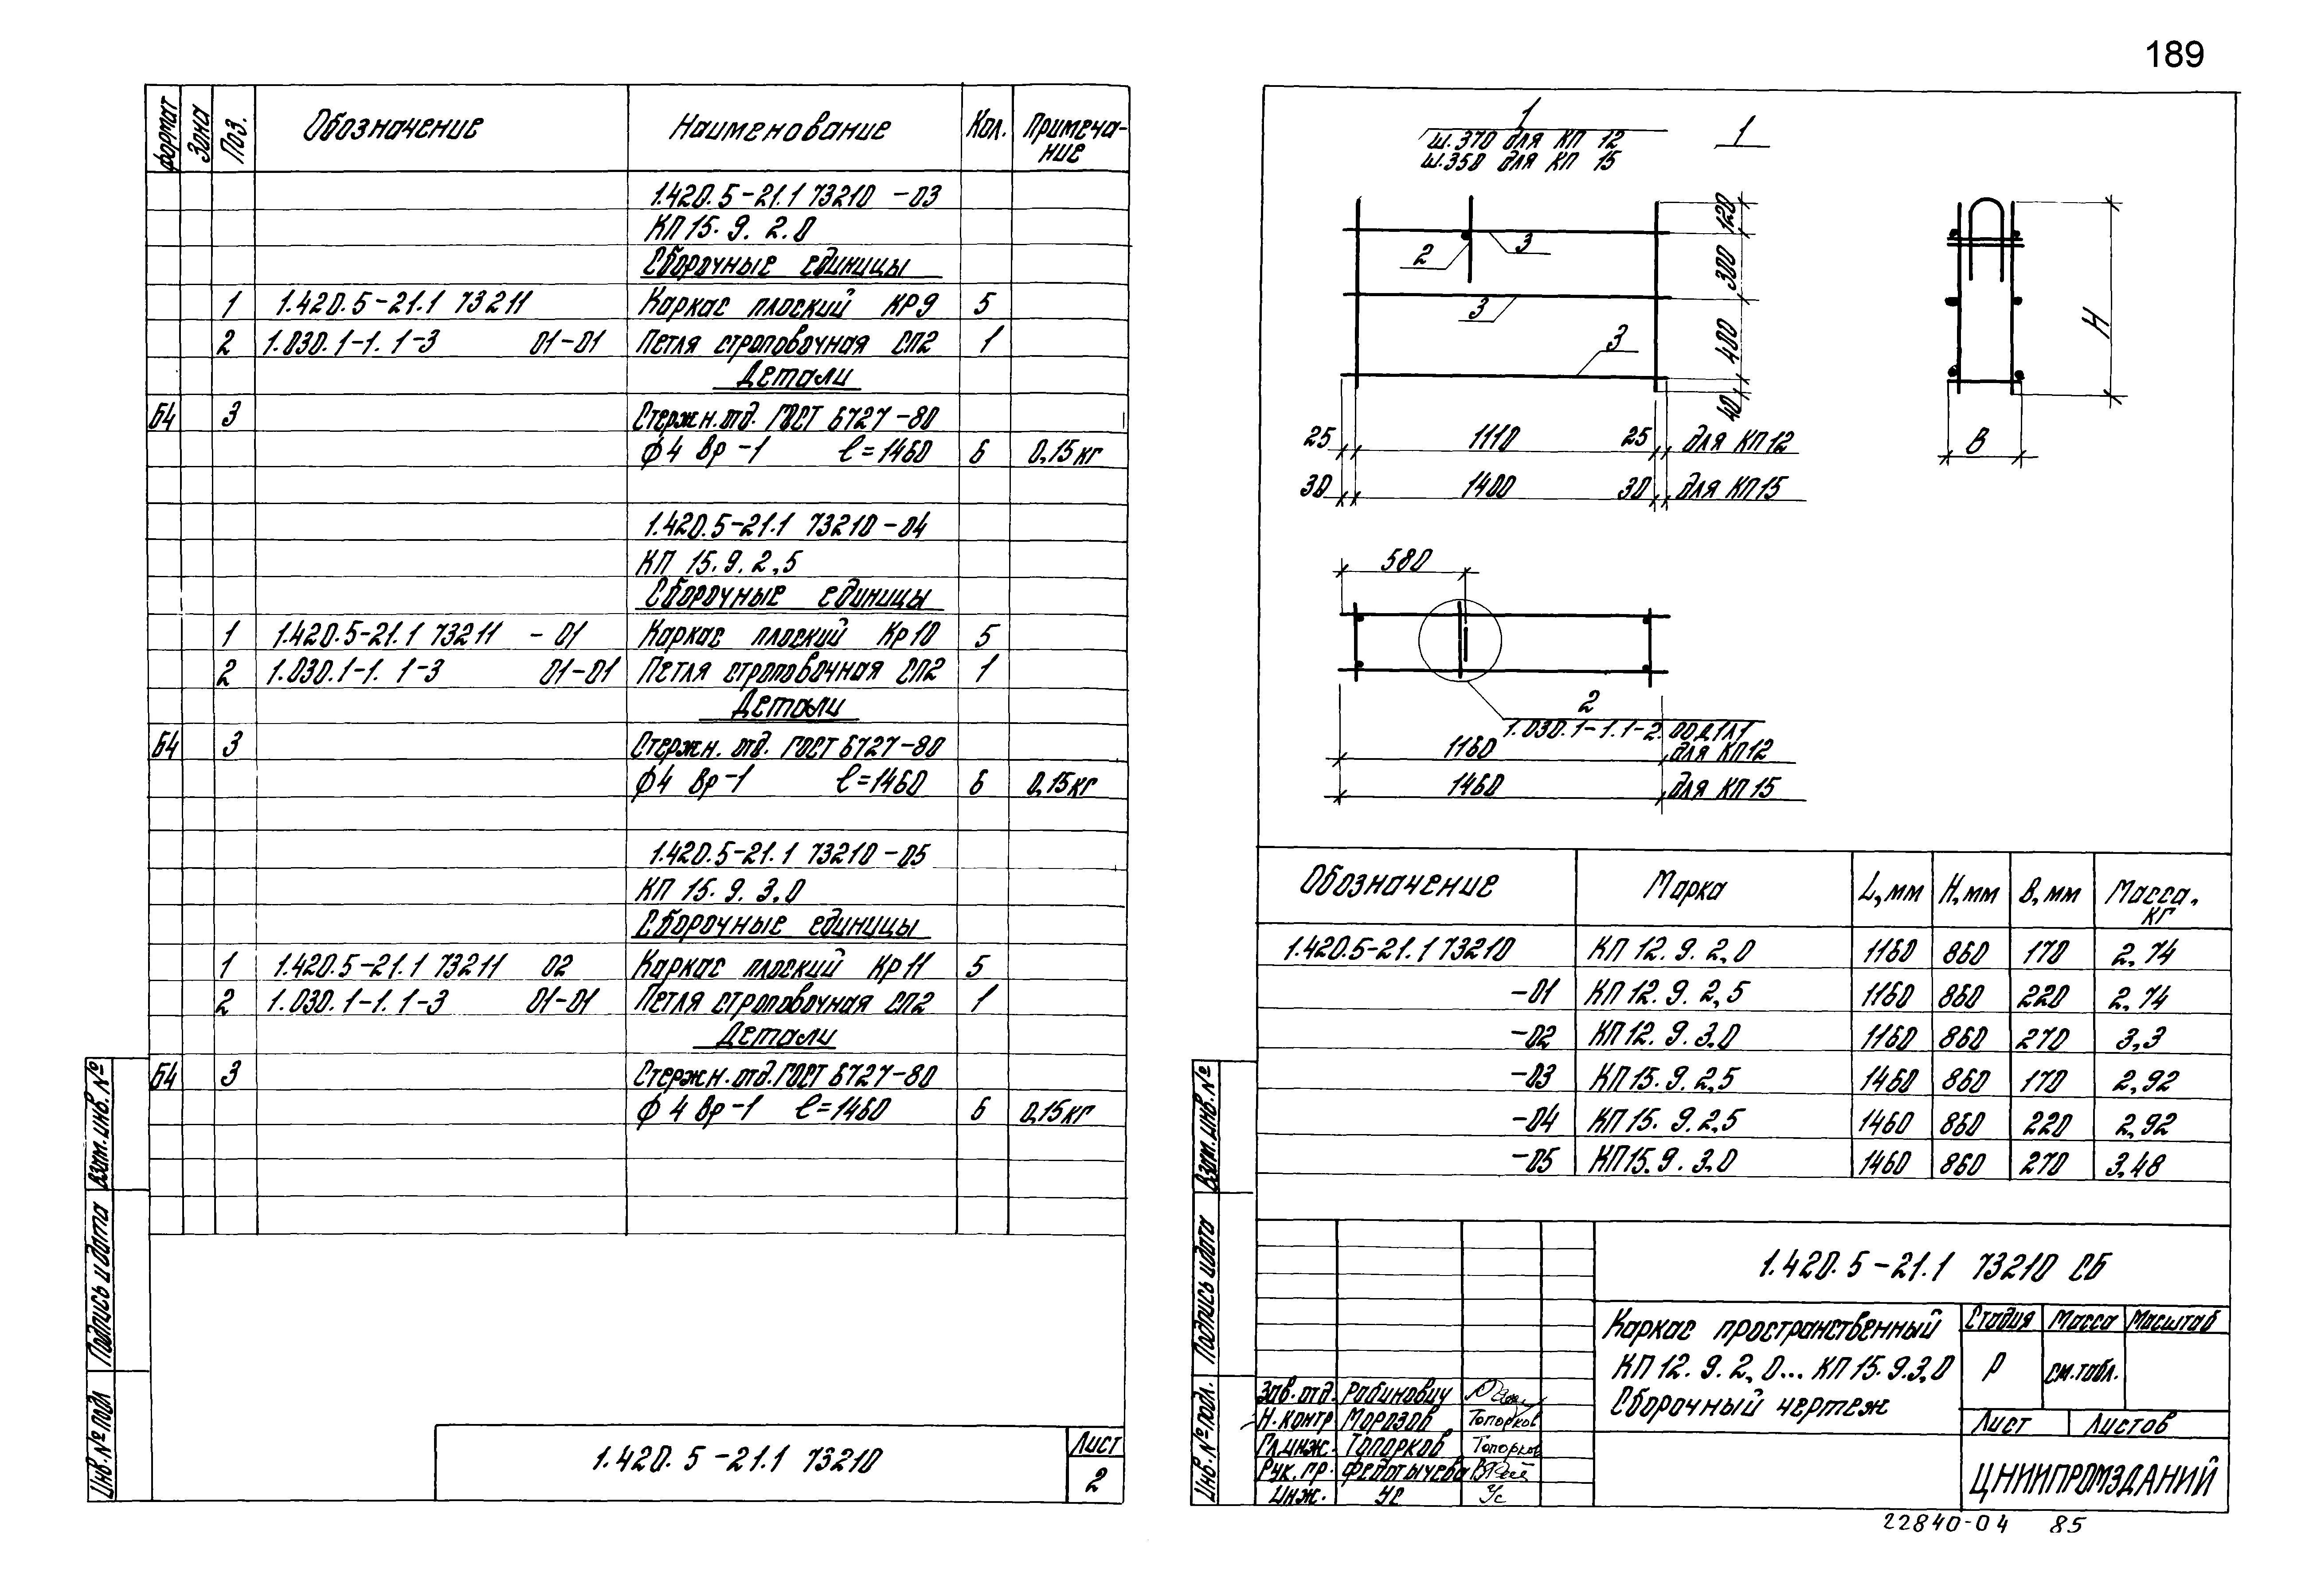 189
формат Зона Поз. Обозначение Наименование Кол. Примеча-
ние
1.420.5-21.1 73210 -03
КП 15. 9. 2.0
Сборочные единицы
1 1.420.5-21.1 73211 Каркас плоский КР9 5
2 1.030.1-1. 1-3 01-01 Петля строповочная СП2 1
Детали
Б4 3 Стержн.отд. ГОСТ 6727-80
ф4 Вр-1 ℓ=1460 6 0,15кг
1.420.5-21.1 73210-04
КП 15.9.2,5
Сборочные единицы
1 1.420.5-21.1 73211 - 01 Каркас плоский Кр10 5
2 1.030.1-1. 1-3 01-01 Петля строповочная СП2 1
Детали
Б4 3 Стержн. отд. ГОСТ 6727-80
ф4 Вр-1 ℓ=1460 6 0,15кг
1.420.5-21.1 73210-05
КП 15. 9. 3.0
Сборочные единицы
1 1.420.5-21.1 73211 02 Каркас плоский Кр11 5
2 1.030.1-1. 1-3 01-01 Петля строповочная СП2 1
Детали
Б4 3 Стержн.отд.ГОСТ 6727-80
ф 4 Вр-1 ℓ=1460 6 0,15кг
Взам.инв.№
Подпись и дата
Инв.№подл
1.420.5-21.1 73210
Лист
2
1
ш.370 для КП 12
ш.350 для КП 15
1
2
3
3
3
120
300
400
40
H
B
25 1110 25 для КП12
30 1400 30 для КП15
580
2
1.030.1-1.1-2.00Д1Л1
1160 для КП12
1460 для КП 15
Обозначение Марка L,мм H,мм B,мм Масса,
кг
1.420.5-21.1 73210 КП 12. 9. 2,0 1160 860 170 2,74
-01 КП 12. 9. 2,5 1160 860 220 2,74
-02 КП 12. 9. 3.0 1160 860 270 3,3
-03 КП 15. 9. 2,5 1460 860 170 2,92
-04 КП 15. 9. 2,5 1460 860 220 2,92
-05 КП 15. 9. 3.0 1460 860 270 3,48
Взам.инв.№
Подпись и дата
Инв.№подл.
1.420.5-21.1 73210 СБ
Каркас пространственный
КП 12. 9. 2,0... КП 15.9.3,0
Сборочный чертеж
Стадия Масса Масштаб
Р см.табл.
Лист Листов
ЦНИИПРОМЗДАНИЙ
Зав.отд. Рабинович
Н.контр Морозов Топорков
Гл.инж. Топорков Топорков
Рук.гр. Федотычева
Инж. Ус Ус
22840-04 85